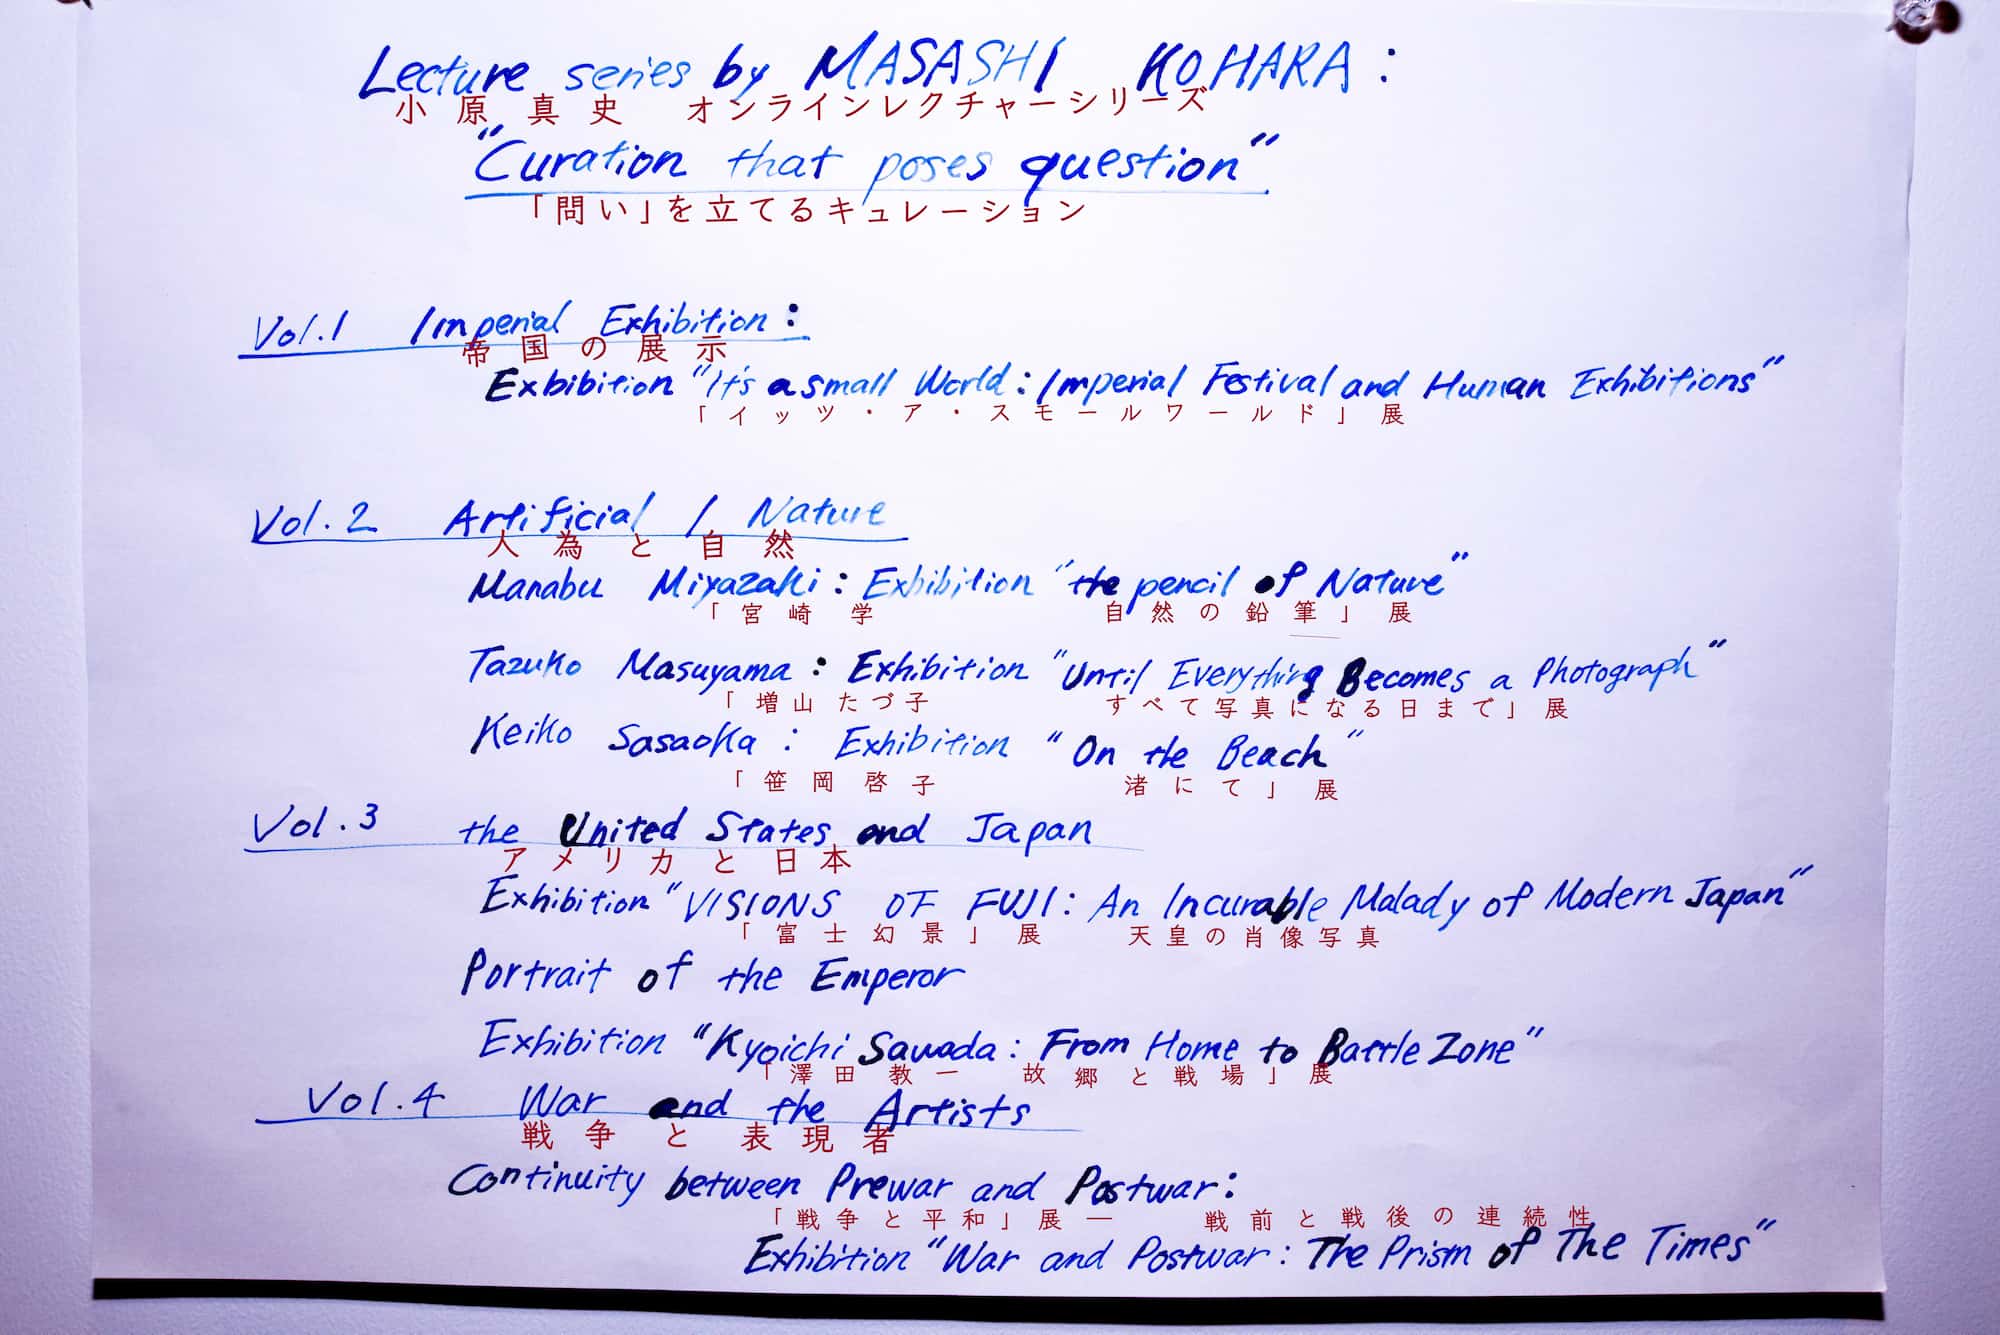 Lecture series by MASASHI KOHARA :
小原真史 オンラインレクチャーシリーズ
"Curation that poses question"
「問い」を立てるキュレーション
Vol.1 Imperial Exhibition :
帝国の展示
Exbibition "It's a small World : Imperial Festival and Human Exhibitions"
「イッツ・ア・スモールワールド」展
Vol.2 Artificial / Nature
人為と自然
Manabu Miyazaki : Exhibition "the pencil of Nature"
「宮崎学 自然の鉛筆」展
Tazuko Masuyama : Exhibition "Until Everything Becomes a Photograph"
「増山たづ子 すべて写真になる日まで」展
Keiko Sasaoka : Exhibition "On the Beach"
「笹岡啓子 渚にて」展
Vol.3 the United States and Japan
アメリカと日本
Exhibition "VISIONS OF FUJI : An Incurable Malady of Modern Japan"
「富士幻景」展 天皇の肖像写真
Portrait of the Emperor
Exhibition "Kyoichi Sawada : From Home to Battle Zone"
「澤田教一 故郷と戦場」展
Vol.4 War and the Artists
戦争と表現者
Continuity between Prewar and Postwar :
「戦争と平和」展― 戦前と戦後の連続性
Exhibition "War and Postwar : The Prism of The Times"